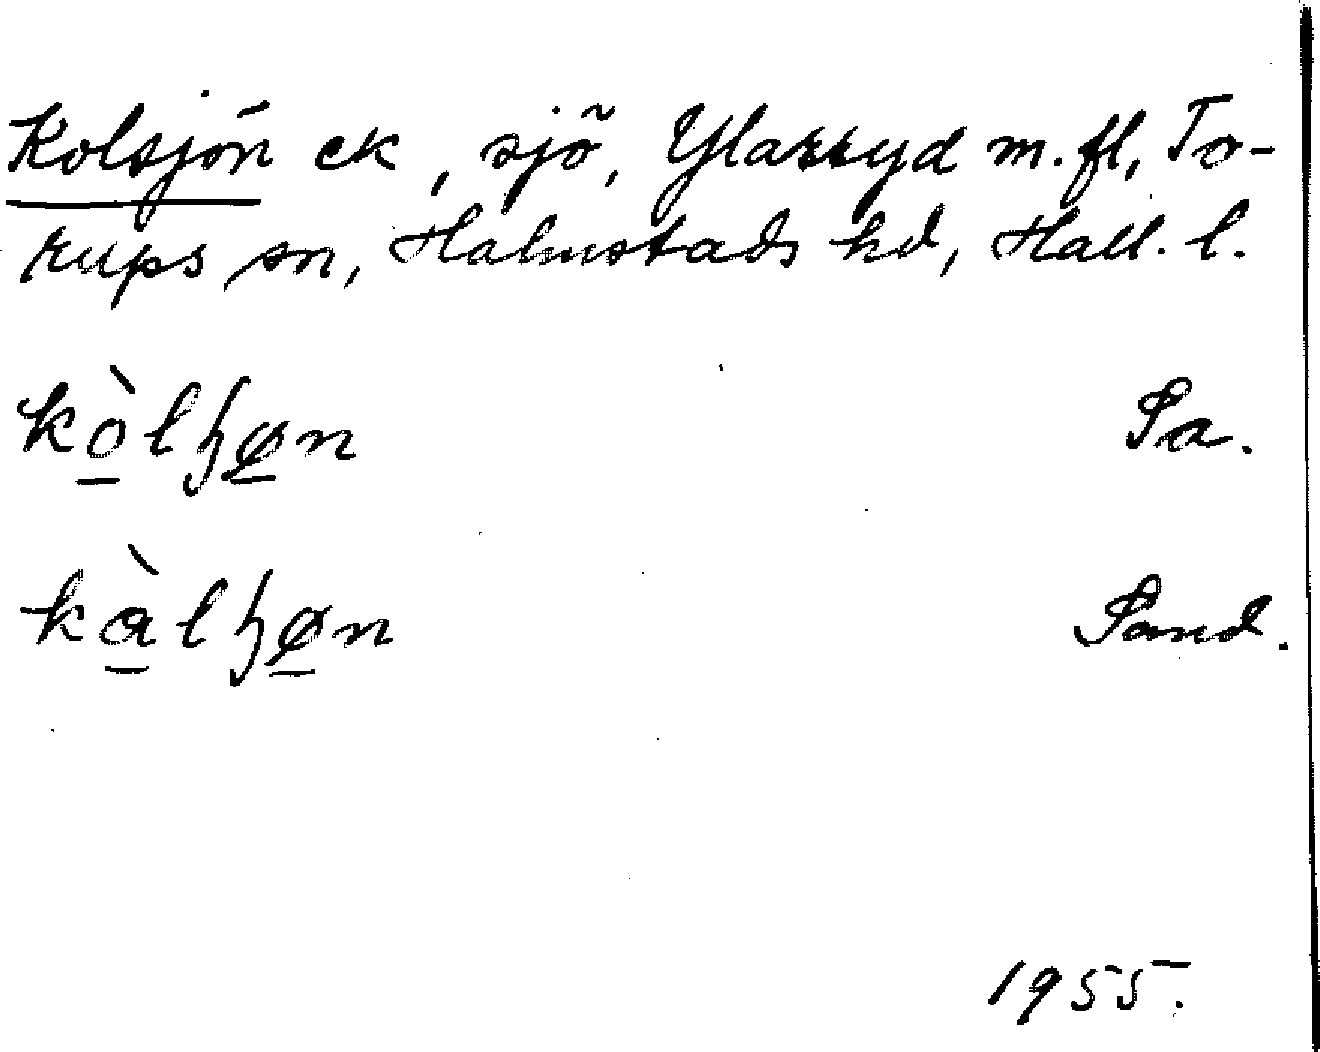 Kolsjön ek, sjö, Ylarryd m.fl, To-
rups sn, Halmstads hd, Hall. l.
kòlɧøn Sa.
kàlɧøn Sand.
1955.